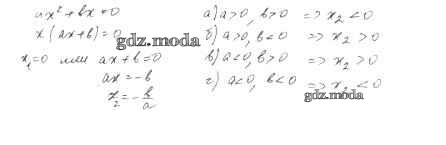 ax² + bx = 0
x(ax+b) = 0
x₁=0 или ax+b=0
ax = -b
x₂ = -b/a
а) a>0, b>0 => x₂ < 0
б) a>0, b<0 => x₂ > 0
в) a<0, b>0 => x₂ > 0
г) a<0, b<0 => x₂ < 0
gdz.moda
gdz.moda